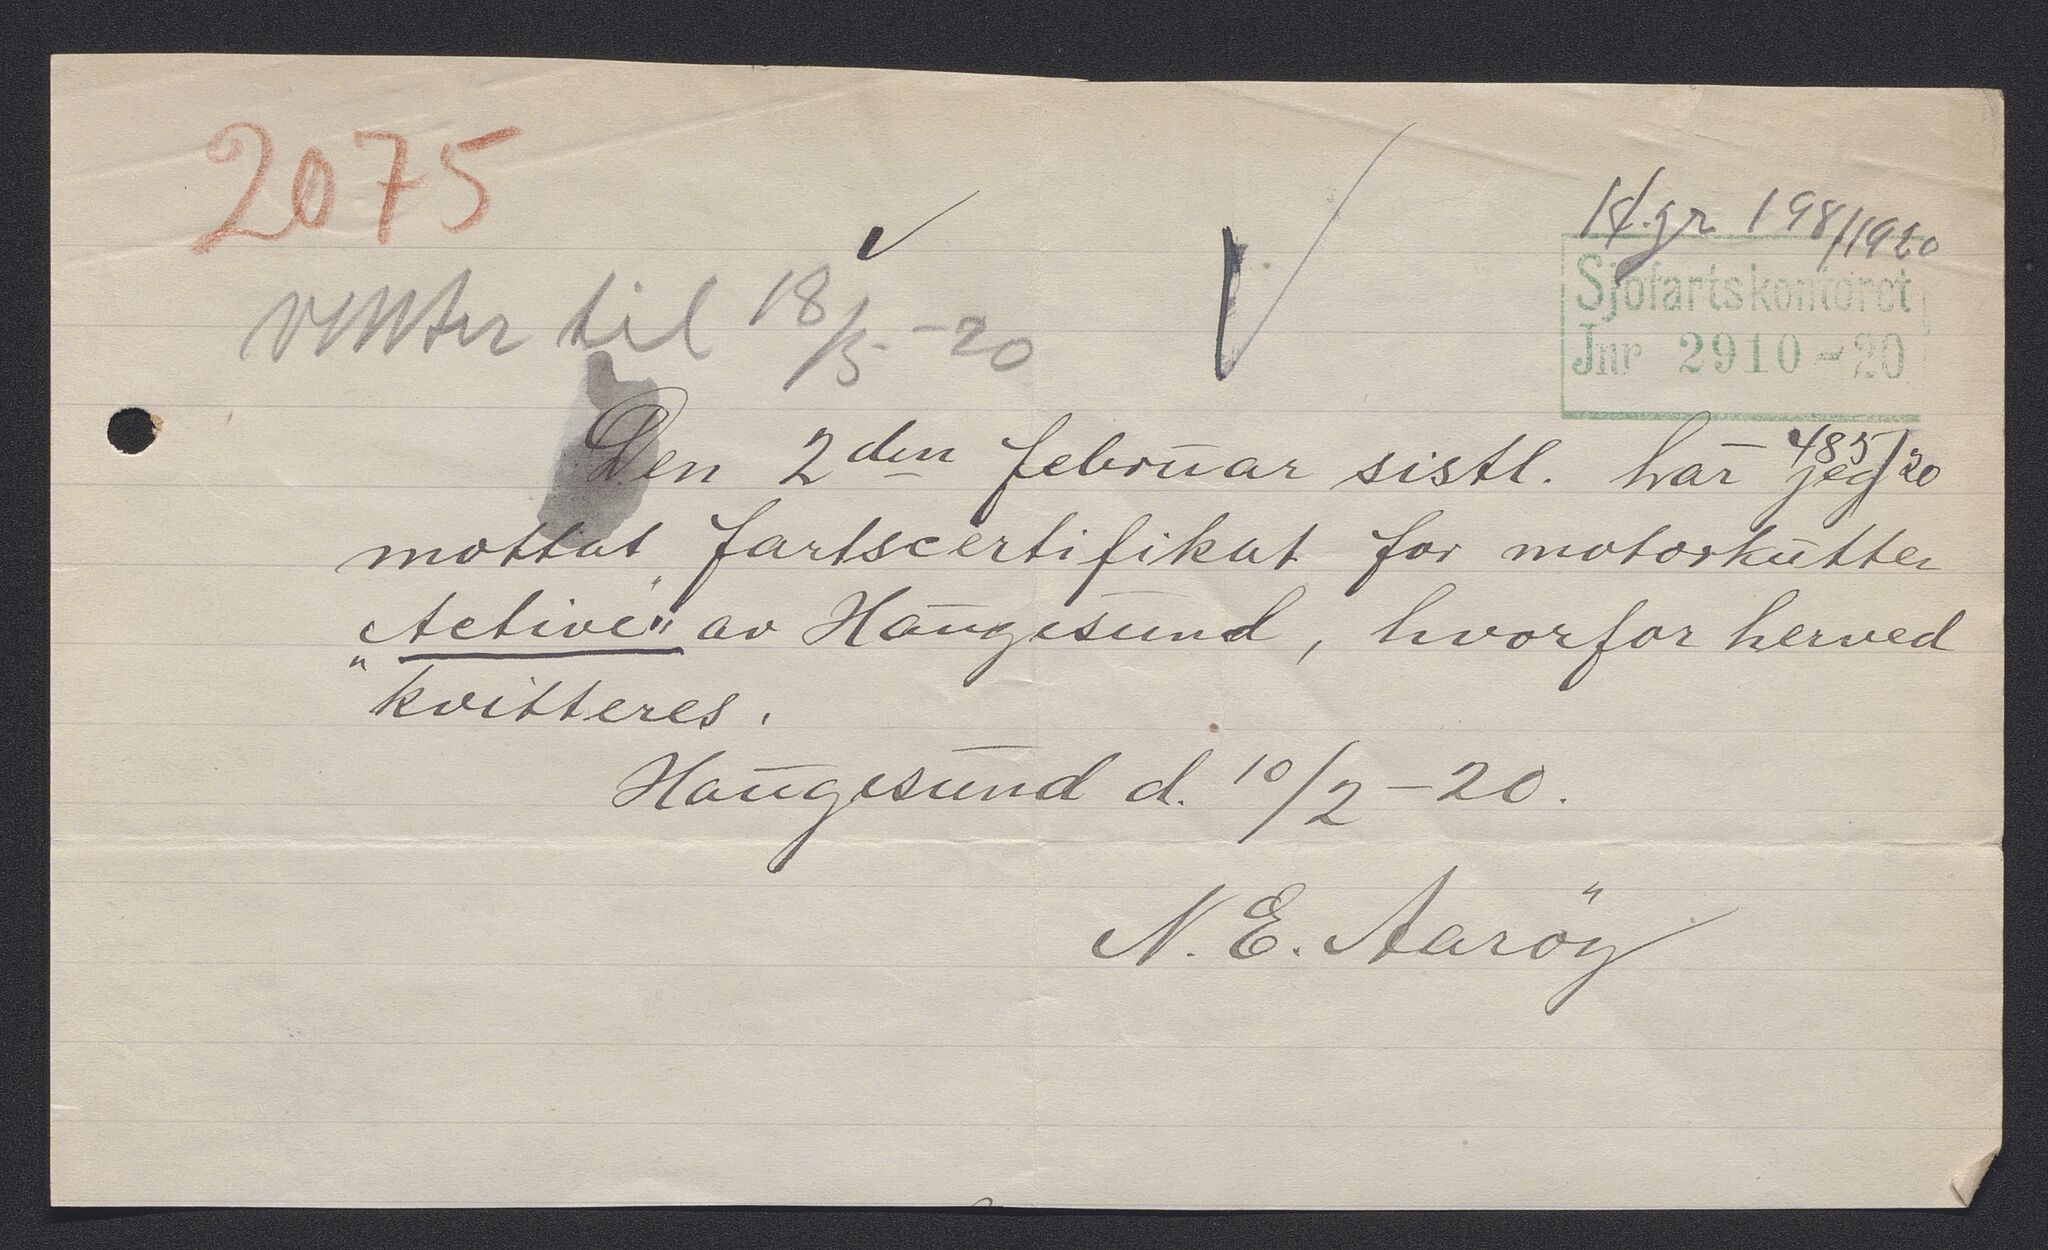 2075
venter til 18/5 - 20
gr 198/1920
Sjøfartskontoret
Jnr 2910 - 20
485/20
Den 2den februar sistl. har jeg
mottat fartscertifikat for motorkutter
„Active" av Haugesund, hvorfor herved
kvitteres.
Haugesund d. 10/2 - 20.
N. E. Aaröy